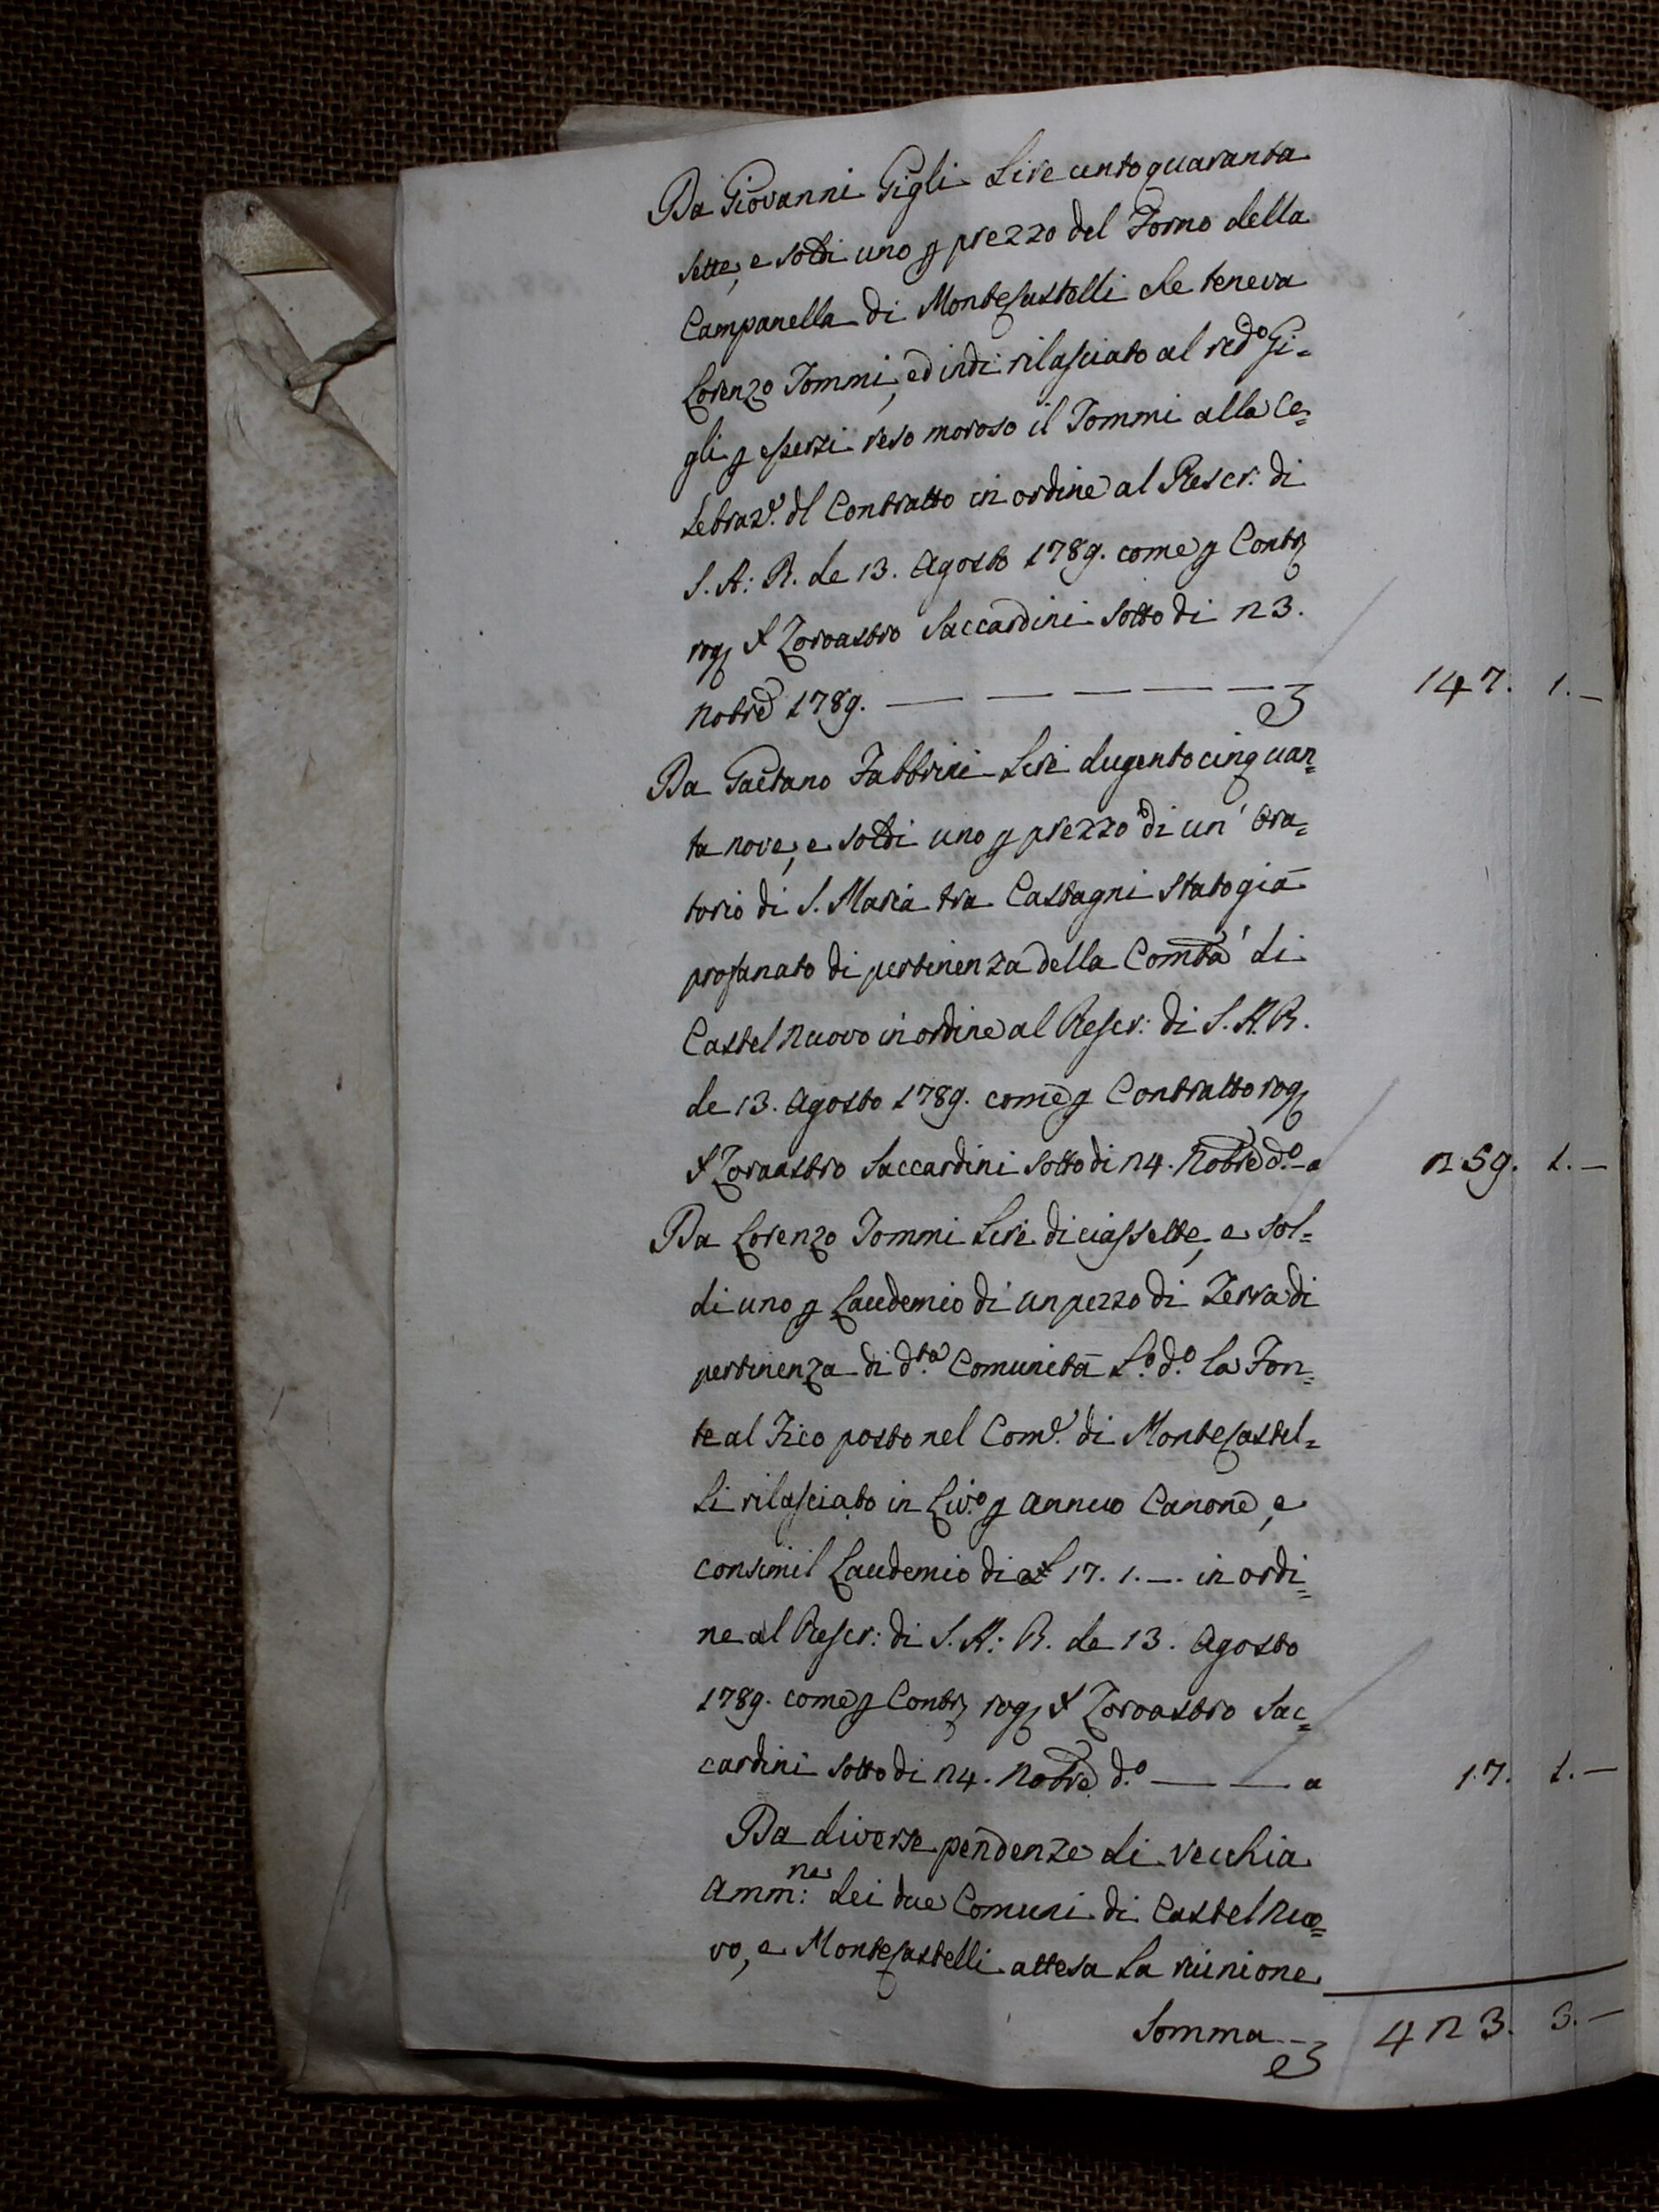 Da Giovanni Gigli Lire cento quaranta
sette, e soldi uno p prezzo del Forno della
Campanella di Montecastelli che teneva
Lorenzo Tommi, ed indi rilasciato al redo Gi=
gli p essersi reso moroso il Tommi alla ce=
lebraze. del Contratto in ordine al Rescr: di
S. A: R. de 13. Agosto 1789. come p Contr
rog. Zoroastro Saccardini sotto di 23.
Nobre 1789. — — — — — 147. 1. —
Da Gaetano Fabbrini Lire dugento cinquan=
ta nove, e soldi uno p prezzo di un' Ora=
torio di S. Maria tra Castagni stato già
profanato di pertinenza della Comtà di
Castel Nuovo in ordine al Rescr: di S. A. R.
de 13. Agosto 1789. come p Contratto rog.
Zoroastro Saccardini sotto di 24. Nobre do. — 259. 1. —
Da Lorenzo Tommi Lire diciassette, e sol=
di uno p Laudemio di un pezzo di Terra di
pertinenza di dta. Comunità Lo. do. la Fon=
te al Fico posto nel Come. di Montecastel=
li rilasciato in Livo. p annuo Canone, e
consimil Laudemio di £ 17. 1. —. in ordi=
ne al Rescr: di S. A: R. de 13. Agosto
1789. come p Contr rog. Zoroastro Sac=
cardini sotto di 24. Nobre do. — — 17. 1. —
Da diverse pendenze di vecchia
Amm:ne dei due Comuni di Castel Nuo=
vo, e Montecastelli attesa la riunione
Somma — 423. 3. —